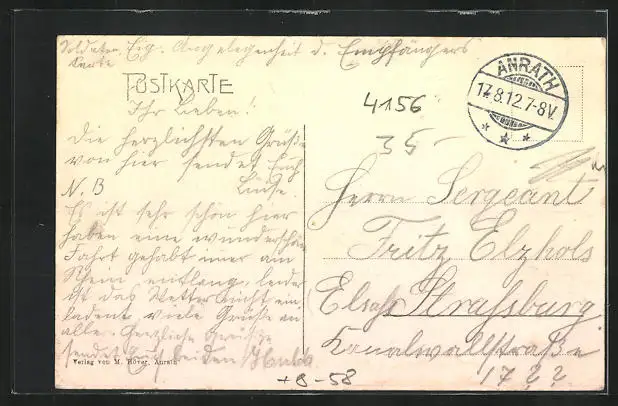 Soldaten Eig. Angelegenheit d. Empfängers
Karte
POSTKARTE
ANRATH
17.8.12.7-8V.
4156
35-
Ihr Lieben!
Die herzlichsten Grüße
von hier sendet Euch
Luise.
N.B
Es ist sehr schön hier
haben eine wunderschöne
Fahrt gehabt immer am
Rhein entlang, leider
ist das Wetter nicht ein
ladend viele Grüße an
alle. Herzliche Grüße
sendet Euch beiden
Herrn Sergeant
Fritz Elzhols
Elsaß Straßburg
Kanalwallstraße
17
Verlag von M. Röver, Anrath
+8-58